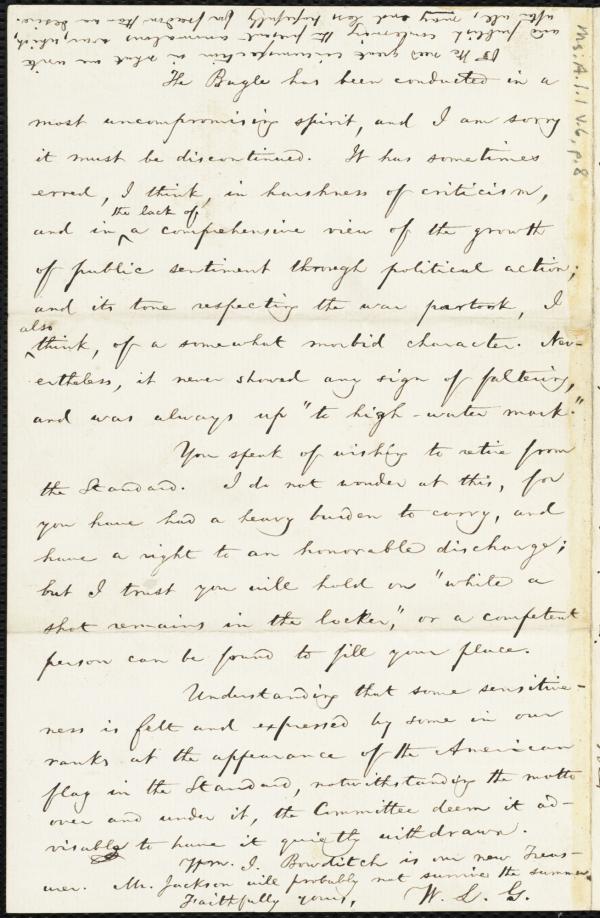 The Bugle has been conducted in a
most uncompromising spirit, and I am sorry
it must be discontinued. It has sometimes
erred, I think, in harshness of criticism,
and in the lack of a comprehensive view of the growth
of public sentiment through political action;
and its tone respecting the war partook, I
also think, of a somewhat morbid character. Nev-
ertheless, it never showed any sign of faltering,
and was always up "to high-water mark."
You speak of wishing to retire from
the Standard. I do not wonder at this, for
you have had a heavy burden to carry, and
have a right to an honorable discharge;
but I trust you will hold on "while a
shot remains in the locker," or a competent
person can be found to fill your place.
Understanding that some sensitive-
ness is felt and expressed by some in our
ranks at the appearance of the American
flag in the Standard, notwithstanding the motto
over and under it, the Committee deem it ad-
visable to have it quietly withdrawn.
Wm. I. Bowditch is our new Treas-
urer. Mr. Jackson will probably not survive the summer.
Faithfully yours, W. L. G.
We need great circumspection in what we write
and publish concerning the present anomalous war, which,
after all, may end less hopefully for freedom than we desire.
Ms. A. 1. 1 v. 6, p. 8